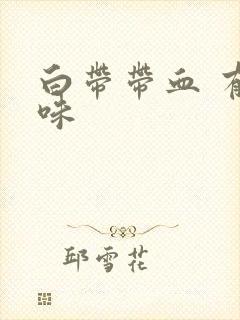 白带带血 有
味
邱雪花